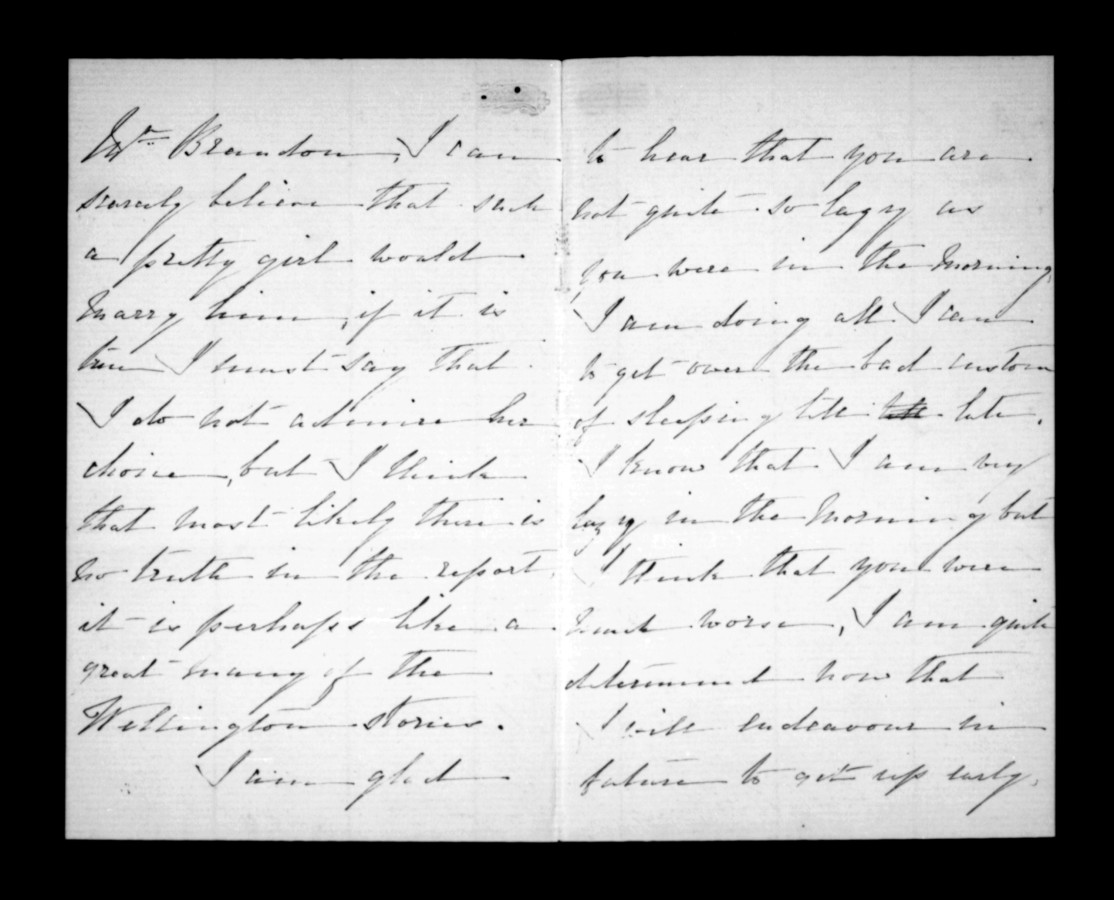 Mr Brandon, I can
scarcely believe that such
a pretty girl would
marry him, if it is
true I must say that
I do not admire her
choice, but I think
that most likely there is
no truth in the report,
it is perhaps like a
great many of the
Wellington stories.
I am glad
to hear that you are
not quite so lazy as
you were in the morning,
I am doing all I can
to get over the bad custom
of sleeping till till late.
I know that I am very
lazy in the morning but
I think that you were
much worse, I am quite
determined now that
I will endeavour in
future to get up early.